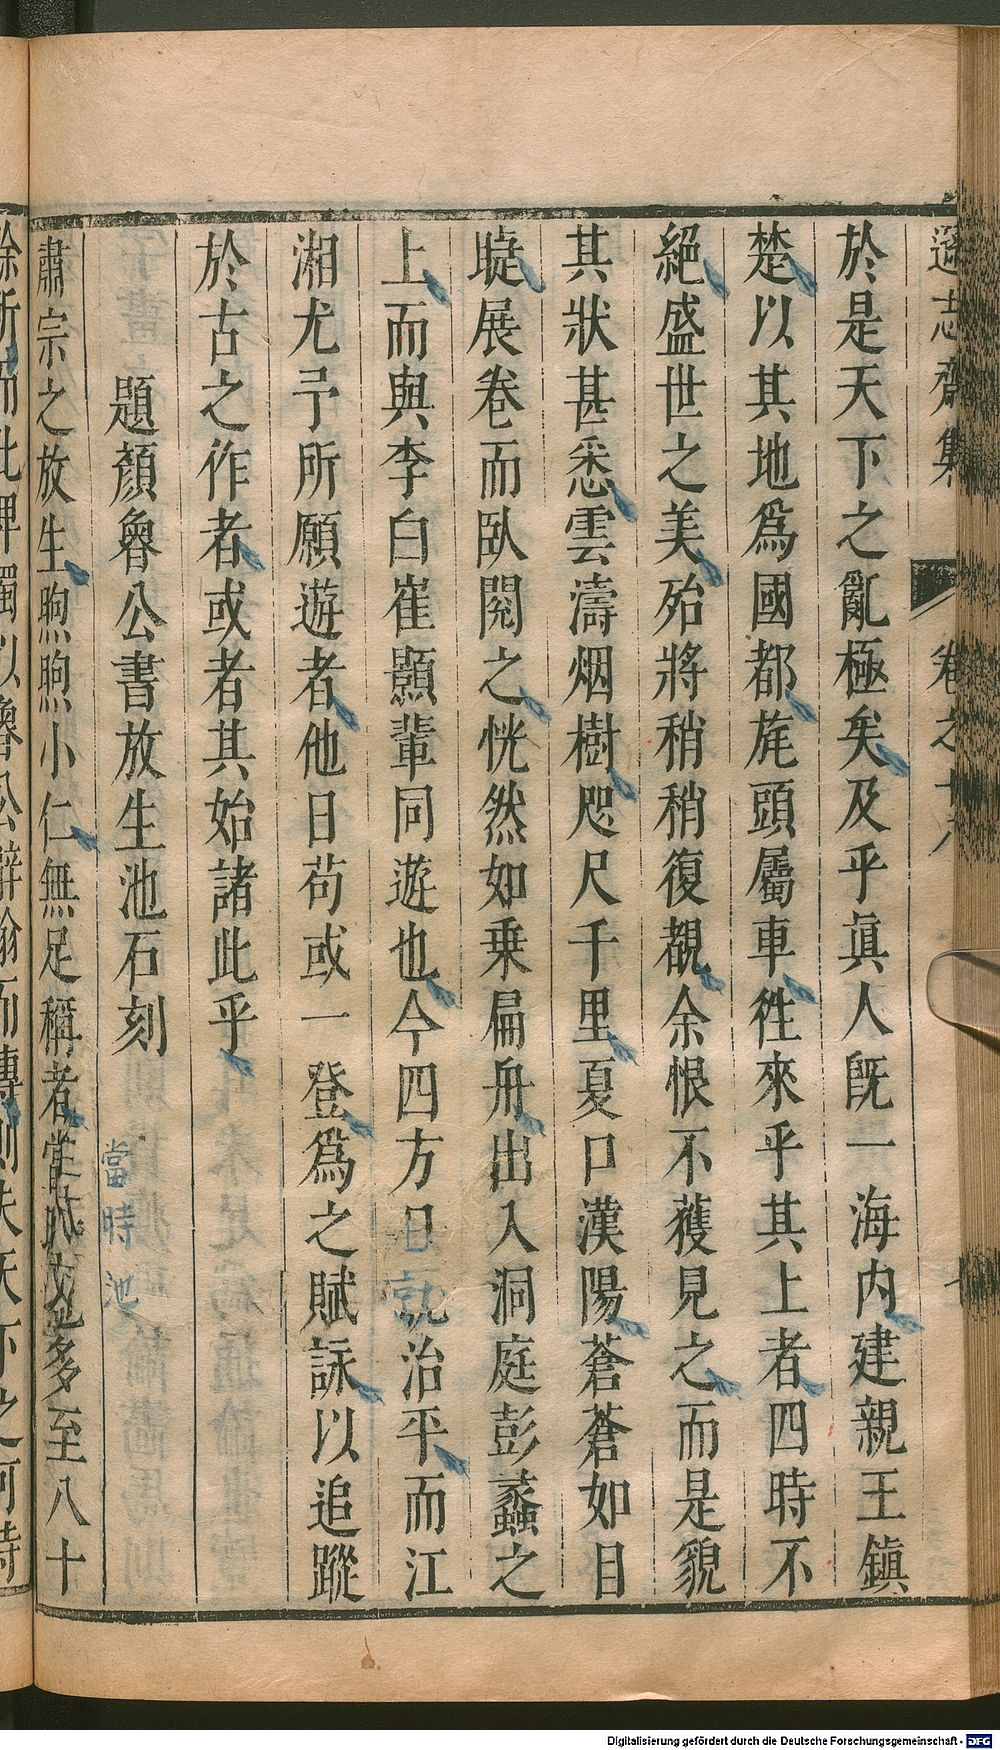 遜志齋集　卷之十八
於是天下之亂極矣及乎眞人旣一海內建親王鎮
楚以其地爲國都旄頭屬車徃來乎其上者四時不
絕盛世之美殆將稍稍復覩余恨不獲見之而是貌
其狀甚悉雲濤烟樹咫尺千里夏口漢陽蒼蒼如目
睫展卷而臥閱之恍然如乗扁舟出入洞庭彭蠡之
上而與李白崔顥輩同遊也今四方日就治平而江
湘尤予所願遊者他日苟或一登爲之賦詠以追蹤
於古之作者或者其始諸此乎
題顏魯公書放生池石刻
肅宗之放生煦煦小仁無足稱者當時池多至八十
當時池
餘所而此碑獨以魯公辭翰而傳則夫
Digitalisierung gefördert durch die Deutsche Forschungsgemeinschaft - DFG